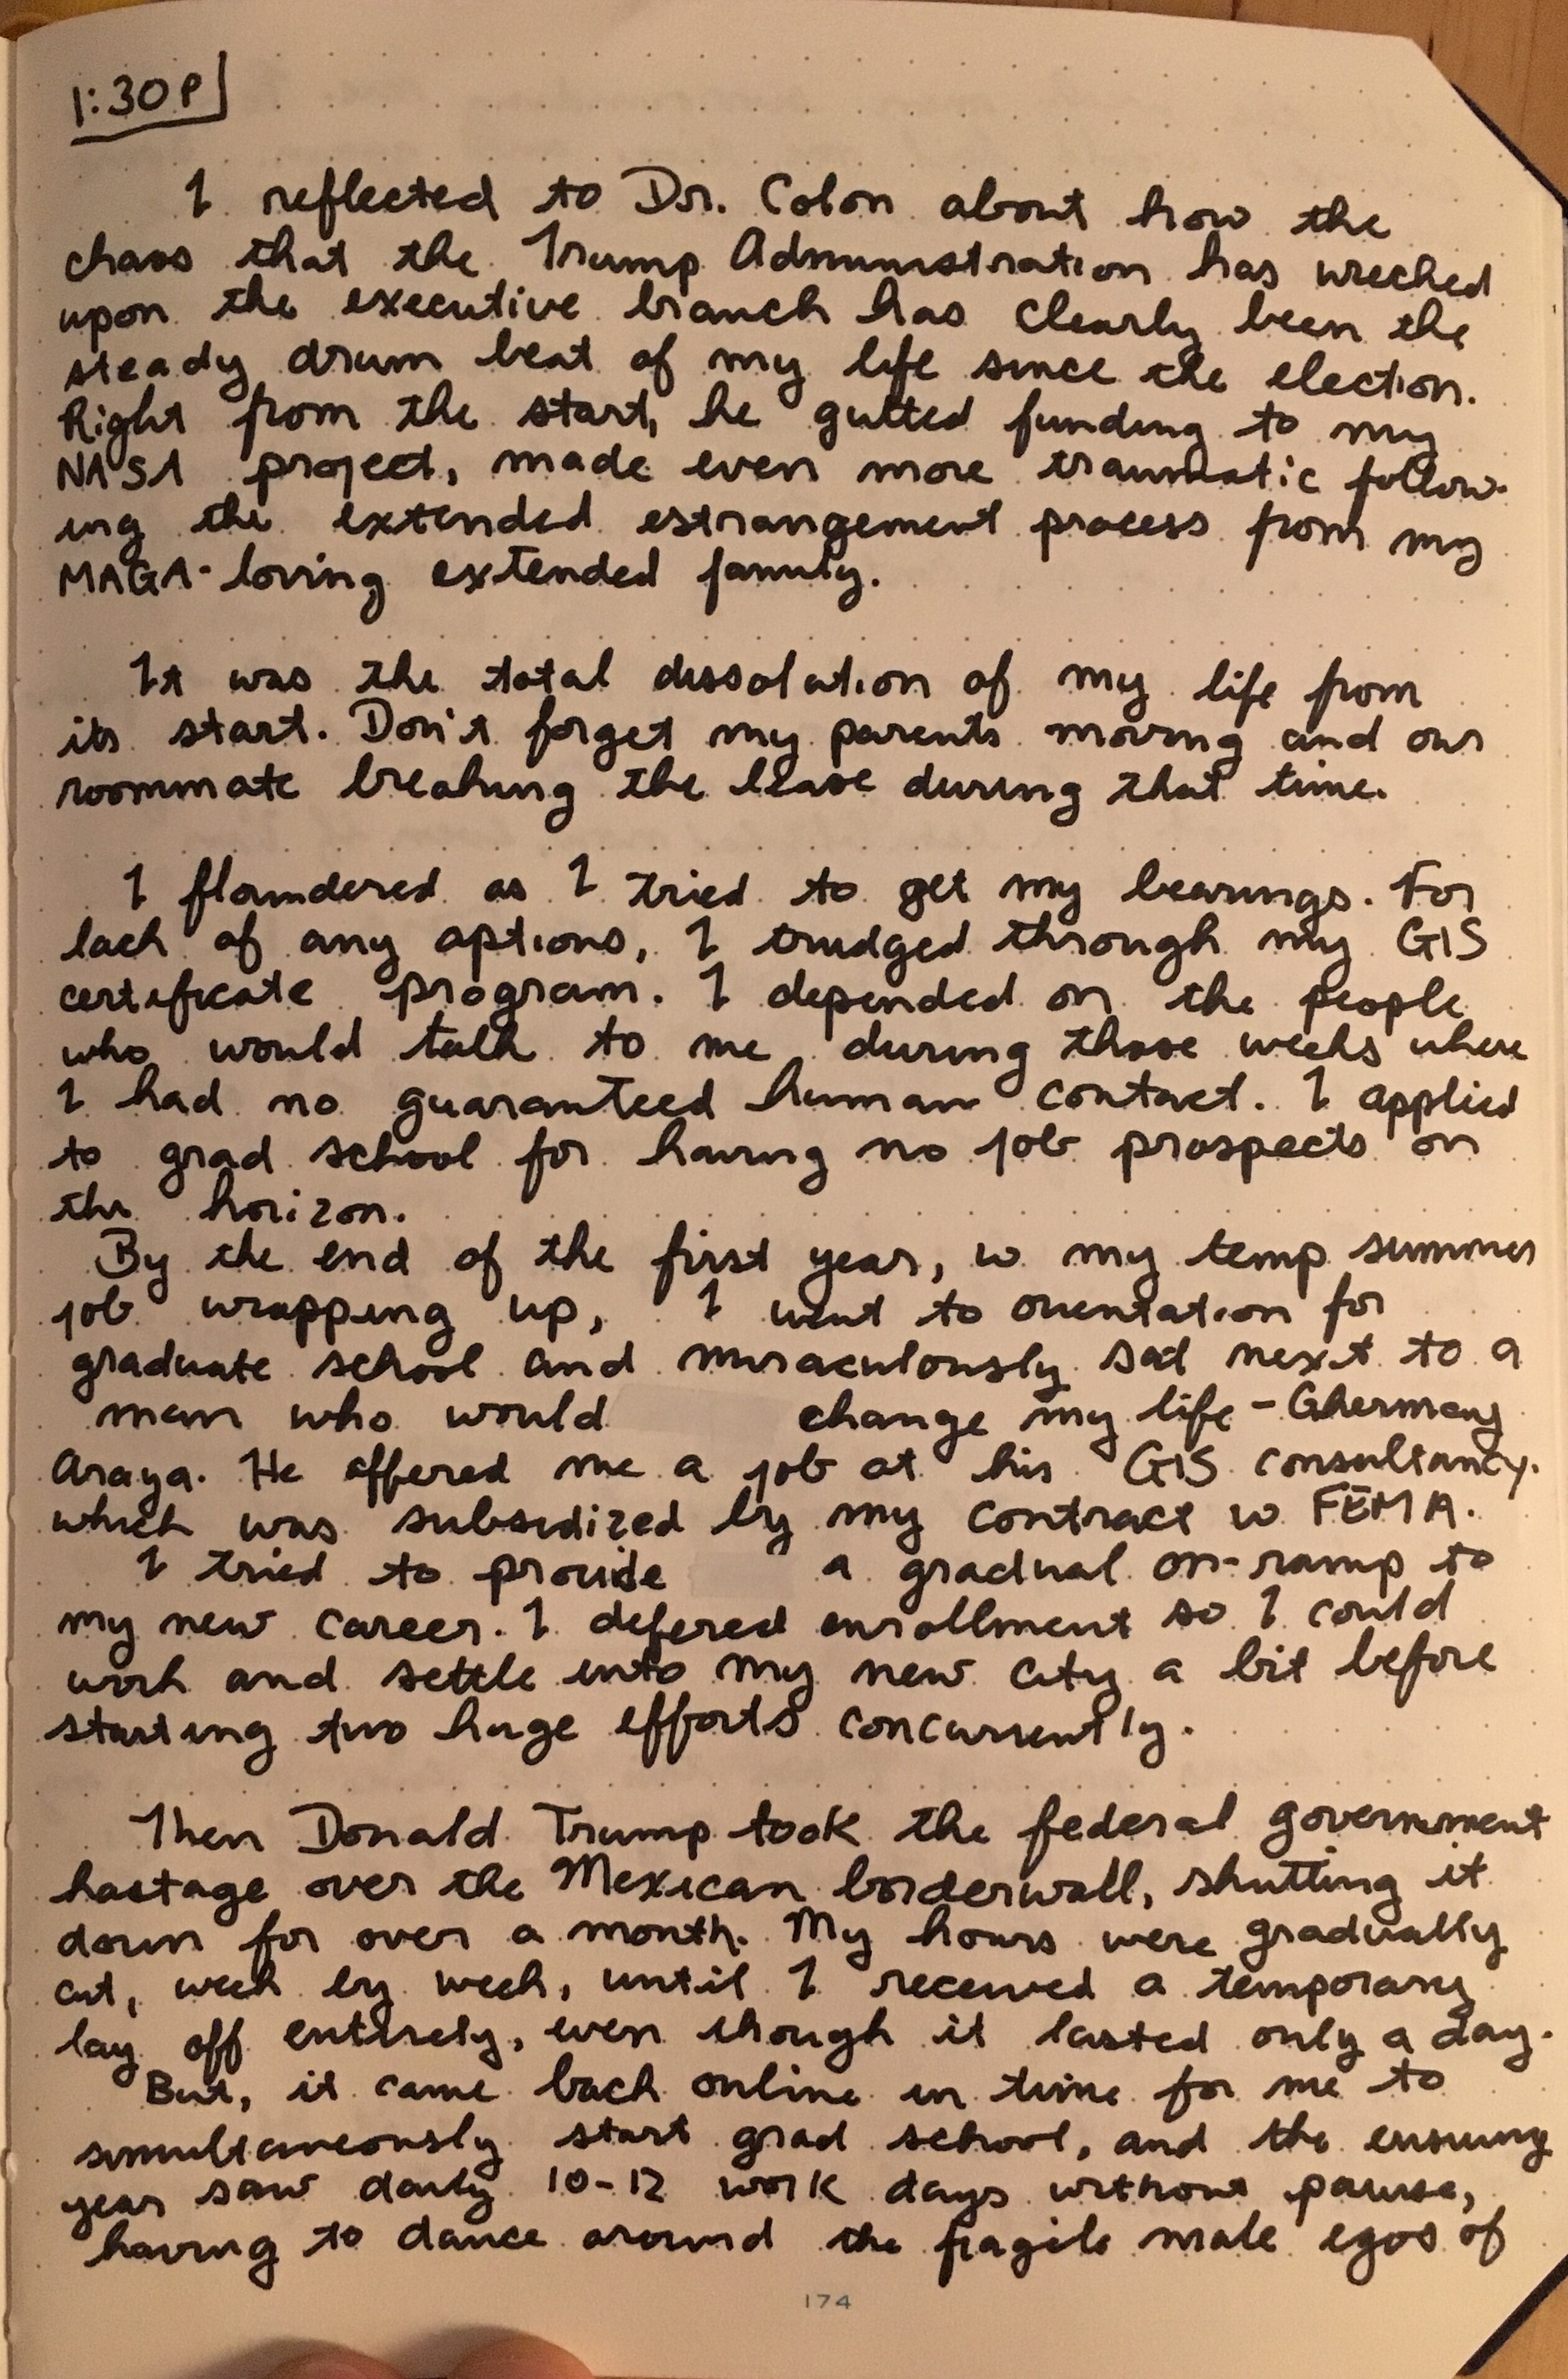 1:30P
I reflected to Dr. Colon about how the
chaos that the Trump Administration has wreched
upon the executive branch has clearly been the
steady drum beat of my life since the election.
Right from the start, he gutted funding to my
NASA project, made even more traumatic follow-
ing the extended estrangement process from my
MAGA-loving extended family.
It was the total dissolution of my life from
its start. Don't forget my parents moving and our
roommate breaking the lease during that time.
I floundered as I tried to get my bearings. For
lack of any options, I trudged through my GIS
certificate program. I depended on the people
who would talk to me during those weeks where
I had no guaranteed human contact. I applied
to grad school for having no job prospects on
the horizon.
By the end of the first year, w my temp summer
job wrapping up, I went to orientation for
graduate school and miraculously sad next to a
man who would change my life - Ghermay
Araya. He offered me a job at his GIS consultancy.
which was subsidized by my contract w FEMA.
I tried to provide a gradual on-ramp to
my new career. I defered enrollment so I could
work and settle into my new city a bit before
starting two huge efforts concurrently.
Then Donald Trump took the federal government
hostage over the Mexican borderwall, shutting it
down for over a month. My hours were gradually
cut, week by week, until I received a temporary
lay off entirely, even though it lasted only a day.
But, it came back online in time for me to
simultaneously start grad school, and the ensuing
year saw daily 10-12 work days without pause,
having to dance around the fragile male egos of
174